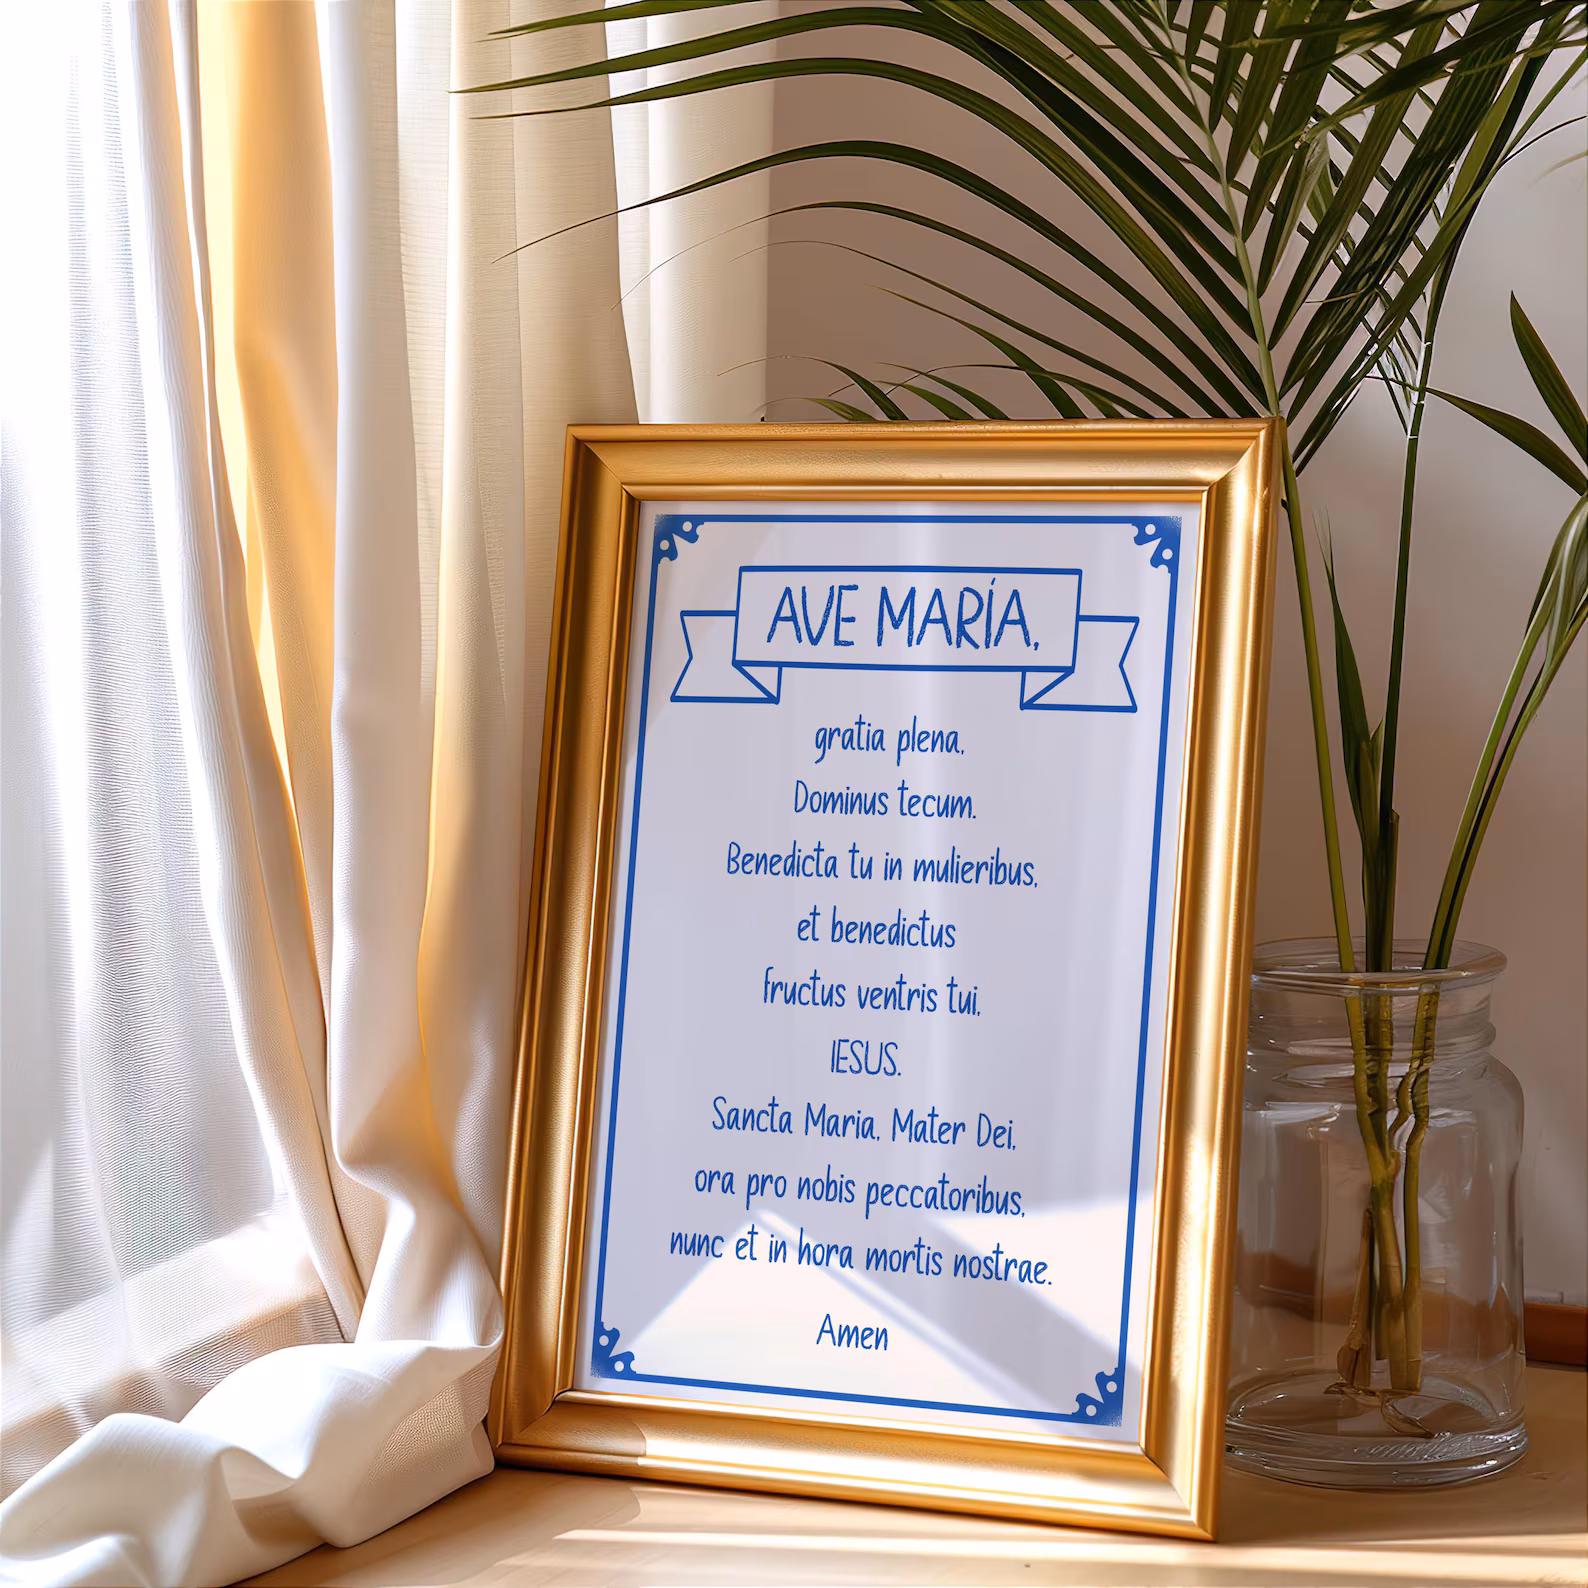 AVE MARÍA,
gratia plena,
Dominus tecum.
Benedicta tu in mulieribus,
et benedictus
fructus ventris tui,
IESUS.
Sancta Maria, Mater Dei,
ora pro nobis peccatoribus,
nunc et in hora mortis nostrae.
Amen